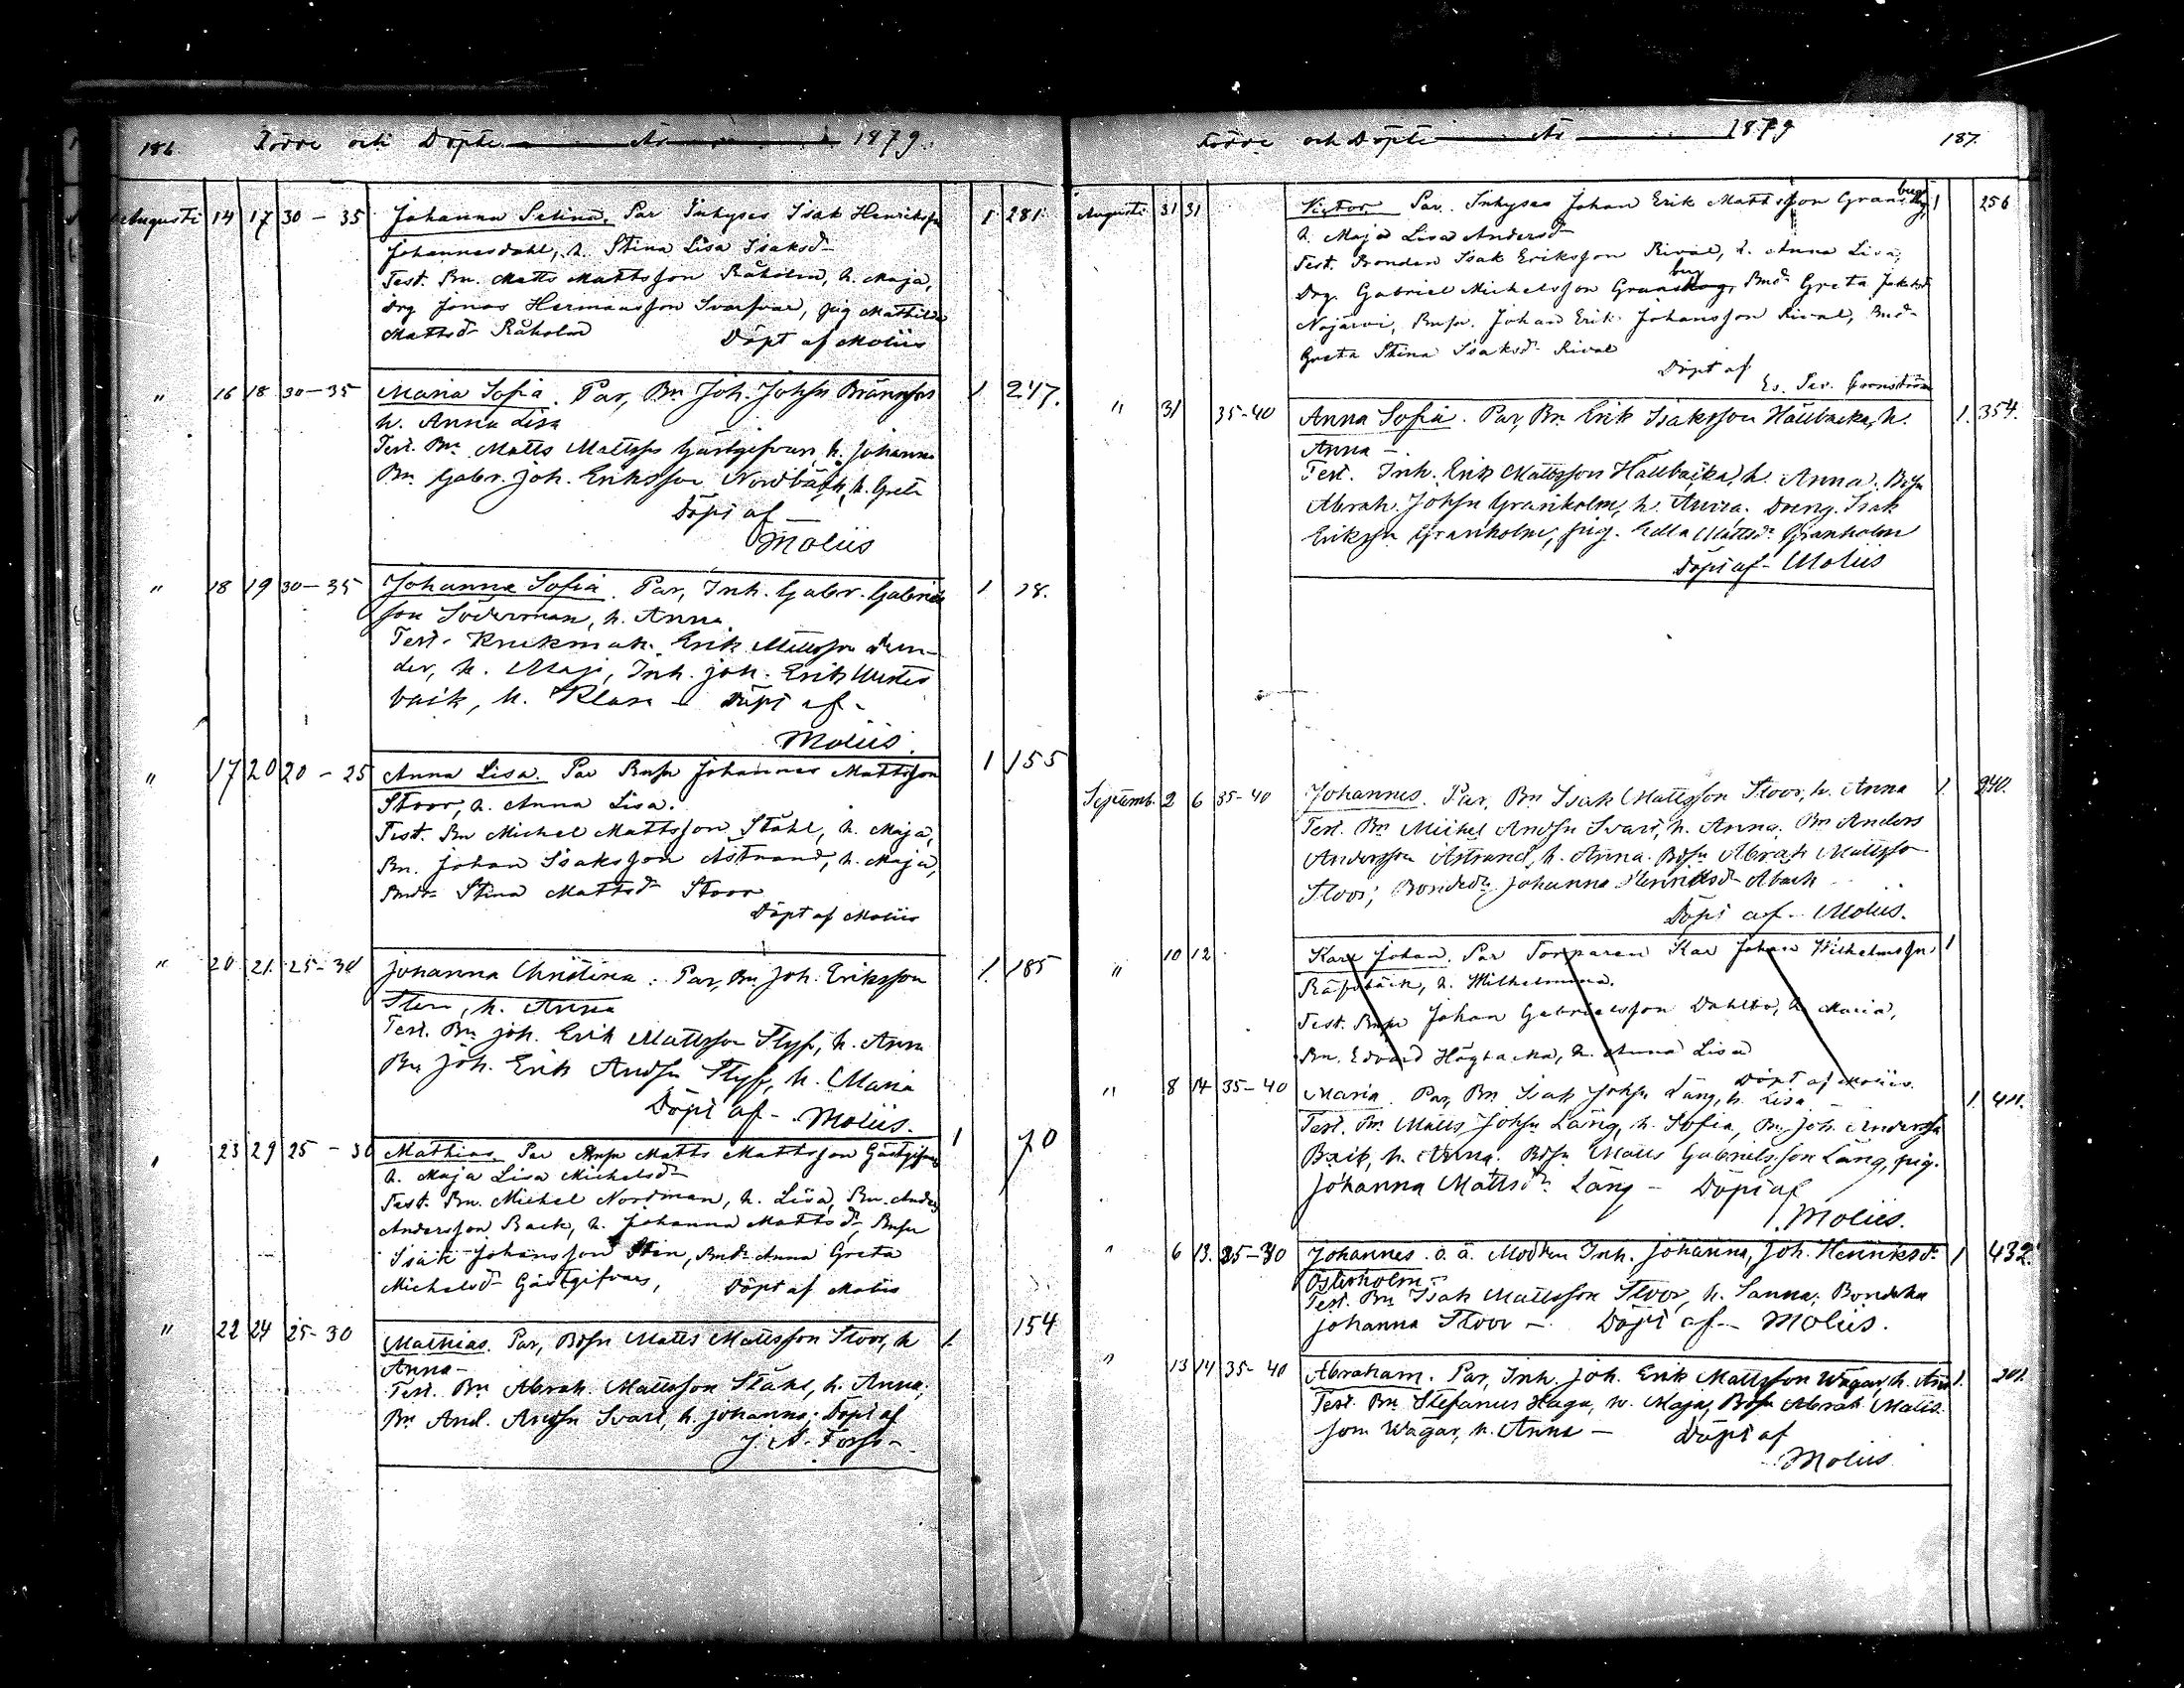 186. Födde och Döpte År 1879.
Augusti 14 17 30-35 Johanna Selina, Par Inhyses Isak Henriksson 1 281.
Johannesdahl, h. Stina Lisa Isaksd.
Test. Bn. Matts Mattsson Råholm, h. Maja,
Drg Jonas Hermansson Svarfvar, pig Mathilda
Mattsd. Råholm Döpt af Moliis
" 16 18 30-35 Maria Sofia. Par, Bn Joh. Johsn Brännfors 1 247.
h. Anna Lisa
Test. Bn. Matts Mattsson Gästgifvars, h. Johanna
Bn Gabr. Joh. Eriksson Nordbäck, h. Greta
Döpt af
Moliis
" 18 19 30-35 Johanna Sofia. Par, Inh. Gabr. Gabriels
son Söderman, h. Anna 1 28.
Test. Erik Mattsson
h. Maja, Inh. Joh. Erik Westerbäck, h. Klara - Döpt af -
Moliis.
" 17 20 20-25 Anna Lisa. Par Bnsn Johannes Mattsson 1 155
Stoor, h. Anna Lisa.
Test. Bn Michel Mattsson Ståhl, h. Maja,
Bn. Johan Isaksson Åstrand, h. Maja,
Bndr. Stina Mattsd. Stoor
Döpt af Moliis
" 20 21. 25-30 Johanna Christina. Par, Bn. Joh. Eriksson 1. 185
Sten, h. Anna
Test. Bn Joh. Erik Mattsson Styf, h. Anna
Bn Joh. Erik Andsn Styf, h. Maria
Döpt af - Moliis.
" 23 29 25-30 Mathias Par Bnsn Matts Mattsson Gästgifvars 1 70
h. Maja Lisa Michelsd.
Test. Bn. Michel Nordman, h. Lisa, Bn. Anders
Andersson Back, h. Johanna Mattsd. Bnsn
Isak Johansson Sten, Bndr. Anna Greta
Michelsd. Gästgifvars, Döpt af Moliis
" 22 24 25-30 Mathias. Par, Bdsn Matts Mattsson Stoor, h. 1. 154
Anna-
Test. Bn Abrah. Mattsson Ståhl, h. Anna,
Bn And. Andsn Svart, h. Johanna; Döpt af
J. A. Forss-
Födde och Döpte År 1879 187.
Augusti 31 31 Victor Par. Inhyses Johan Erik Mattsson Gran 1 256
h. Maja Lisa Andersd.
Test. Bonden Isak Eriksson Rival, h. Anna Lisa,
Drg. Gabriel Michelsson Bnd. Greta Jakobsd
Nojärvi, Bnsn. Johan Erik Johansson Rival, Bnd.
Greta Stina Isaksd. Rival
Döpt af
" 31 35-40 Anna Sofia. Par, Bn Erik Isaksson Hällbacka, h. 1. 354.
Anna -
Test. Inh. Erik Mattsson Hällbacka, h. Anna. Bdsn
Abrah. Johsn Granholm, h. Anna. Dreng. Isak
Eriksson Granholm, pig. Edla Mattsdr Granholm
Döpt af - Moliis
Septemb. 2 6 35-40 Johannes. Par, Bn Isak Mattsson Stoor, h. Anna 1. 240.
Test. Bn Michel Andsn Svart, h. Anna. Bn Anders
Andersson Åstrand, h. Anna. Bdsn Abrah Mattsson
Stoor; Bondedr. Johanna Henriksd. Aback
Döpt af - Moliis.
" 10 12 Karl Johan. Par Torparen Karl Johan Wilhelmsson 1
h. Wilhelmina.
Test. Bnsn Johan Gabrielsson Dahlbo, h Maria,
Bn. Edvard Högbacka, h. Anna Lisa
Döpt af Moliis.
" 8 14 35-40 Maria. Par, Bn Isak Johsn Lång, h. Lisa - 1. 411.
Test. Bn Matts Johsn Lång, h. Sofia, Bn Joh. Andersson
Back, h. Anna. Bdsn Matts Gabrielsson Lång, pig.
Johanna Mattsdr. Lång - Döpt af
Moliis.
" 6 13. 25-30 Johannes o. ä. Modren Inh. Johanna, Joh. Henriksdr 1 432.
Österholm -
Test. Bn Isak Mattsson Stoor, h. Sanna, Bondehu
Johanna Stoor - Döpt af - Moliis.
" 13 14 35-40 Abraham. Par, Inh. Joh. Erik Mattsson Wägar, h. Anna 1. 301.
Test. Bn Stefanus Haga, h. Maja, Bdsn Abrah Matts-
son Wägar, h. Anna - Döpt af
Moliis